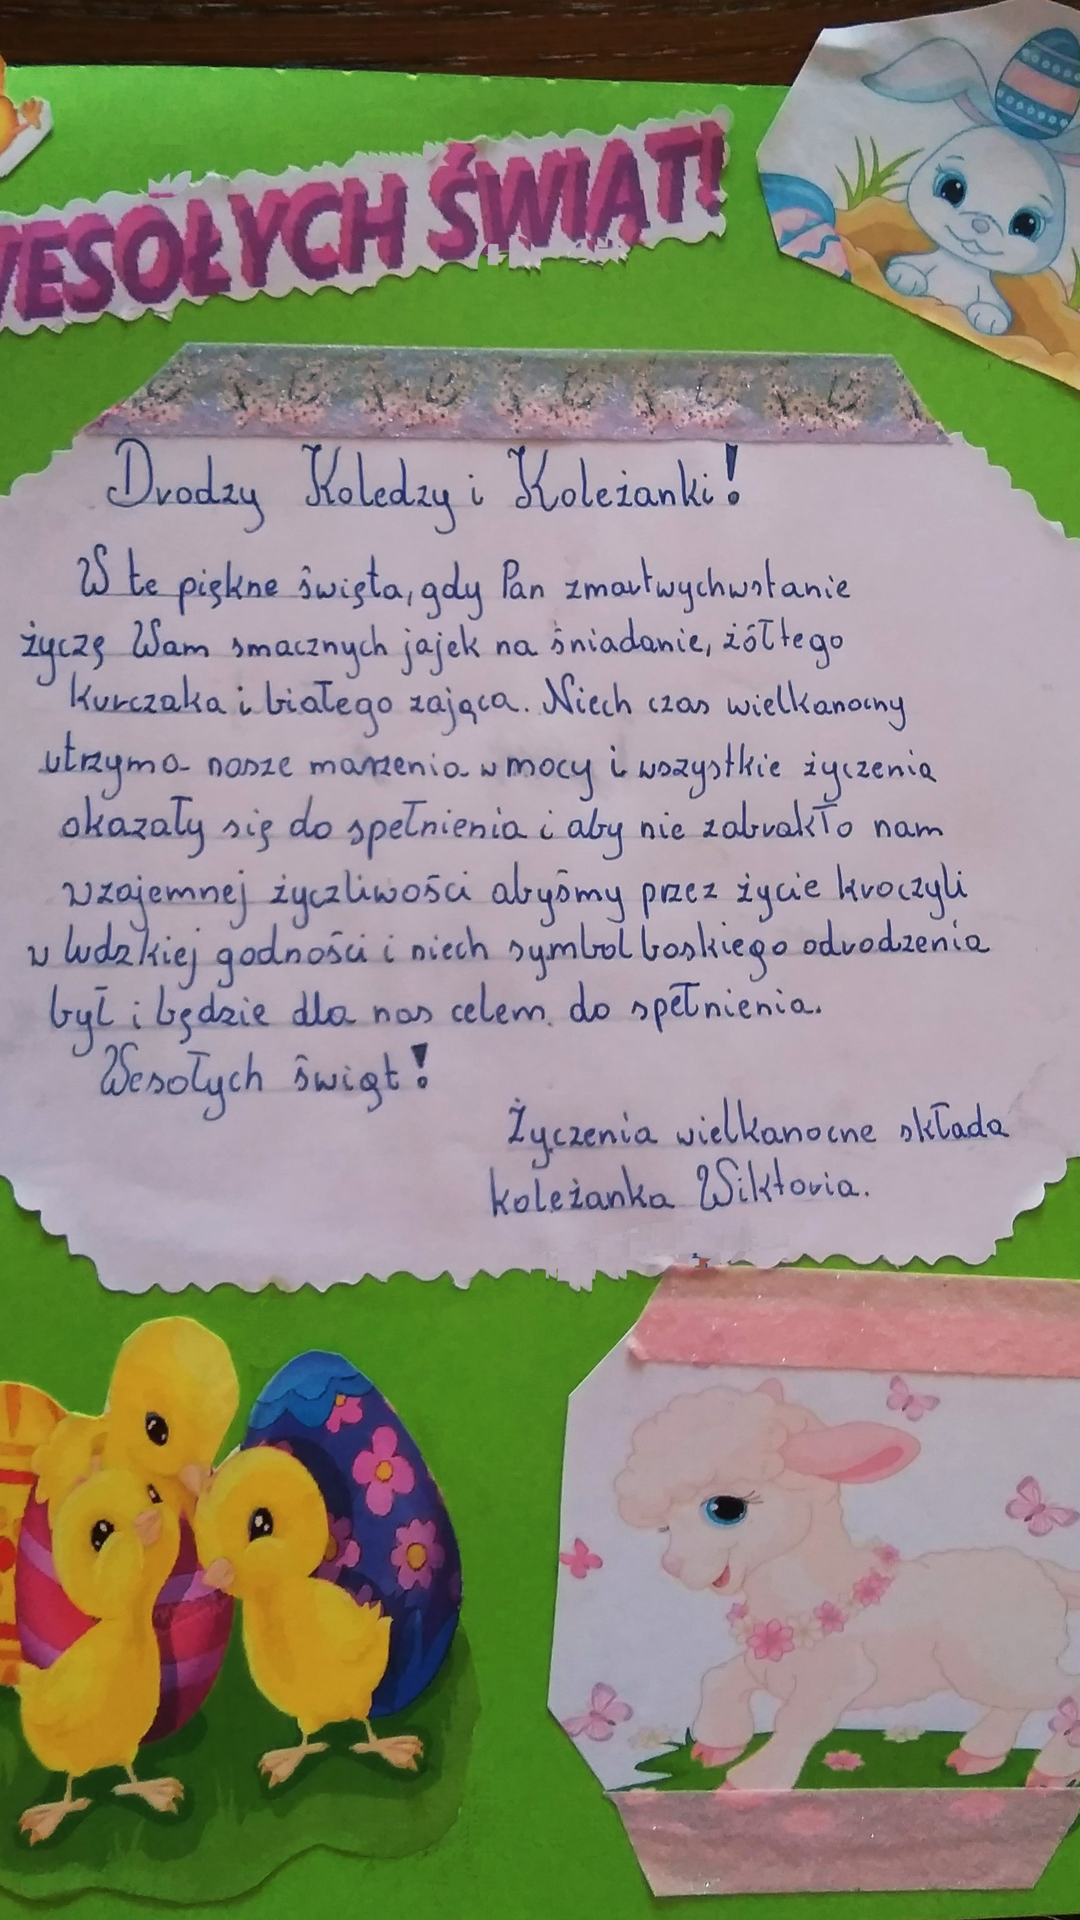 WESOŁYCH ŚWIĄT!
Drodzy Koledzy i Koleżanki!
W te piękne święta, gdy Pan zmartwychwstanie
życzę Wam smacznych jajek na śniadanie, żółtego
kurczaka i białego zająca. Niech czas wielkanocny
utrzyma nasze marzenia w mocy i wszystkie życzenia
okazały się do spełnienia i aby nie zabrakło nam
wzajemnej życzliwości abyśmy przez życie kroczyli
w ludzkiej godności i niech symbol boskiego odrodzenia
był i będzie dla nas celem do spełnienia.
Wesołych świąt!
Życzenia wielkanocne składa
koleżanka Wiktoria.